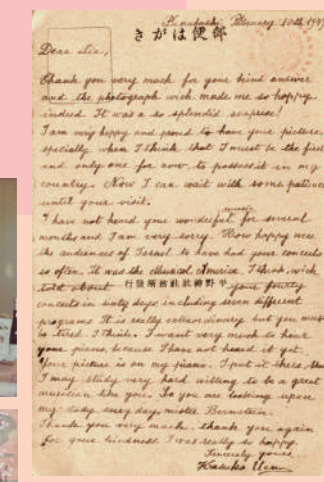 Funabashi, February 10th 1949
郵便はがき
Dear Sir,
Thank you very much for your kind answer
and the photograph wich made me so happy
indeed. It was a so splendid surprise!
I am very happy and proud to have your picture,
specially when I think that I must be the first
and only one for now to possess it in my
country. Now I can wait with some patience
until your visit.
I have not heard your wonderful music for several
months and I am very sorry. How happy were
the audiences of Israel to have had your concerts
so often. It was the Musical America I think, wich
told about your fourty
平野神社社務所發行
concerts in sixty days including seven different
programs. It is really extraordinary but you must
be tired I think. I want very much to hear
your piano, because I have not heard it yet.
Your picture is on my piano. I put it there, that
I may study very hard willing to be a great
musician like you. So you are looking upon
my study every day, mister Bernstein.
Thank you very much, thank you again
for your kindness. I was really so happy.
Sincerely yours
Kazuko